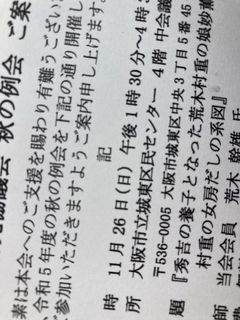 協議会 秋の例会 ご案
素は本会へのご支援を賜わり有難うござい
、令和5年度の秋の例会を下記の通り開催し
ご参加いただきますようご案内申し上げます。
記
時 11月26日(日)午後1時30分~4時
所 大阪市立城東区民センター 4階 中会議
〒536-0005 大阪市城東区中央3丁目5番45
題 『秀吉の養子となった荒木村重の娘紗薫
村重の女房だしの系図』
師 当会会員 荒木 幹雄 氏